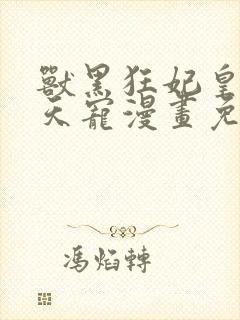 獸黑狂妃皇
天寵漫畫免
馮焰轉